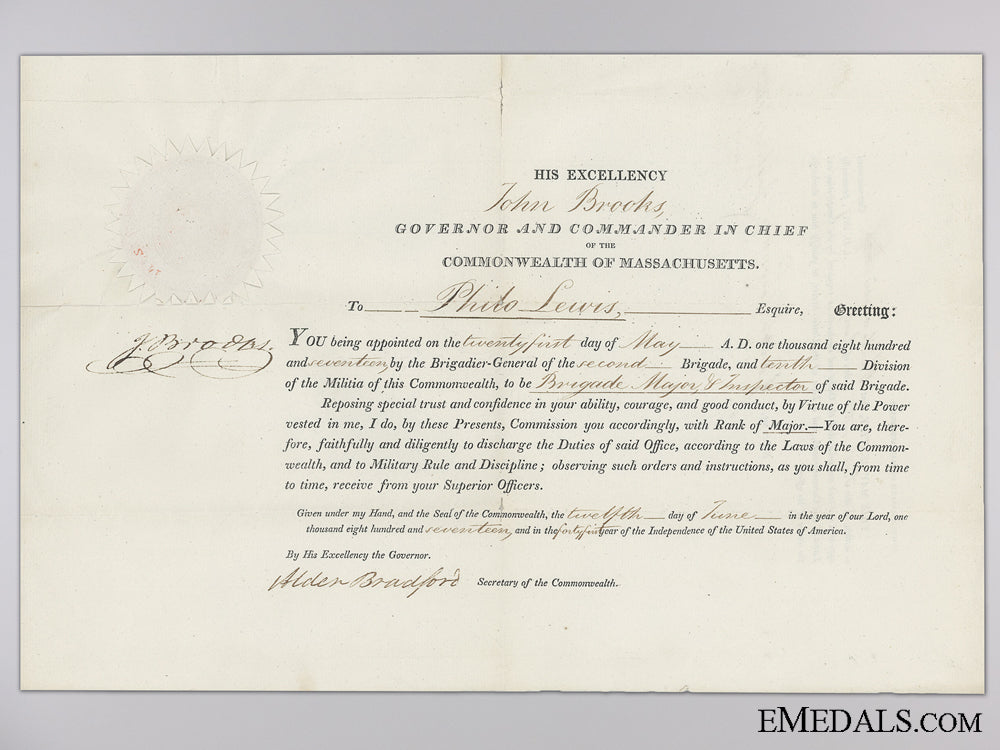 HIS EXCELLENCY
John Brooks,
GOVERNOR AND COMMANDER IN CHIEF
OF THE
COMMONWEALTH OF MASSACHUSETTS.
To Philo Lewis, Esquire, Greeting:
J. Brooks
YOU being appointed on the twenty first day of May A. D. one thousand eight hundred
and seventeen, by the Brigadier-General of the second Brigade, and tenth Division
of the Militia of this Commonwealth, to be Brigade Major, & Inspector of said Brigade.
Reposing special trust and confidence in your ability, courage, and good conduct, by Virtue of the Power
vested in me, I do, by these Presents, Commission you accordingly, with Rank of Major.—You are, there-
fore, faithfully and diligently to discharge the Duties of said Office, according to the Laws of the Common-
wealth, and to Military Rule and Discipline; observing such orders and instructions, as you shall, from time
to time, receive from your Superior Officers.
Given under my Hand, and the Seal of the Commonwealth, the twelfth day of June in the year of our Lord, one
thousand eight hundred and seventeen, and in the forty first year of the Independence of the United States of America.
By His Excellency the Governor.
Alden Bradford Secretary of the Commonwealth.
EMEDALS.COM